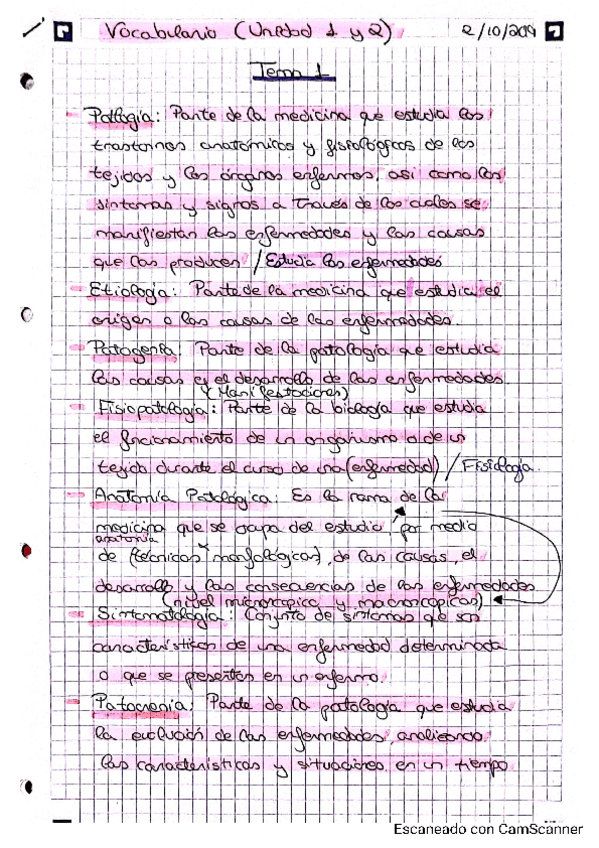 Vocabulario (Unidad 1 y 2) 2/10/2019
Tema 1
- Patlogía: Parte de la medicina que estudia los
trastornos anatómicos y fisiológicos de los
tejidos y los órganos enfermos, así como los
síntomas y signos a través de los cuales se
manifiestan las enfermedades y las causas
que las producen / Estudia las enfermedades
- Etiología: Parte de la medicina que estudia el
origen o las causas de las enfermedades.
- Patogenia: Parte de la patología que estudia
las causas y el desarrollo de las enfermedades
(Manifestaciones)
- Fisiopatología: Parte de la biología que estudia
el funcionamiento de un organismo o de un
tejido durante el curso de una (enfermedad) / Fisiología.
- Anatomía Patológica: Es la rama de la
medicina que se ocupa del estudio, por medio
anatomía
de (técnicas morfológicas), de las causas, el
desarrollo y las consecuencias de las enfermedades
(nivel microscópico y macroscópicas)
- Sintomatología: Conjunto de síntomas que son
característicos de una enfermedad determinada
o que se presentan en un enfermo.
- Patocronia: Parte de la patología que estudia
la evolución de las enfermedades, analizando
las características y situaciones en un tiempo
Escaneado con CamScanner